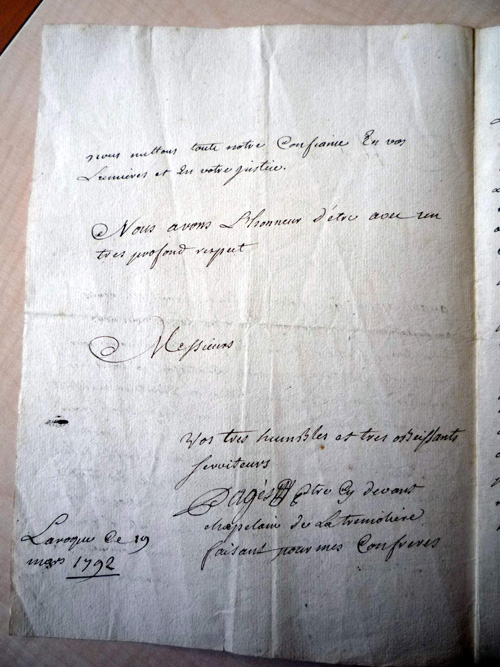 nous mettons toute notre Confiance En vos
Lumières et En votre justice.
Nous avons L'honneur d'être avec un
tres profond respect
Messieurs
Vos tres humbles et tres obeissants
serviteurs
Pagès ptre Cy devant
chapelain de La tremolière
faisant pour mes Confreres
Laroque Ce 19
mars 1792